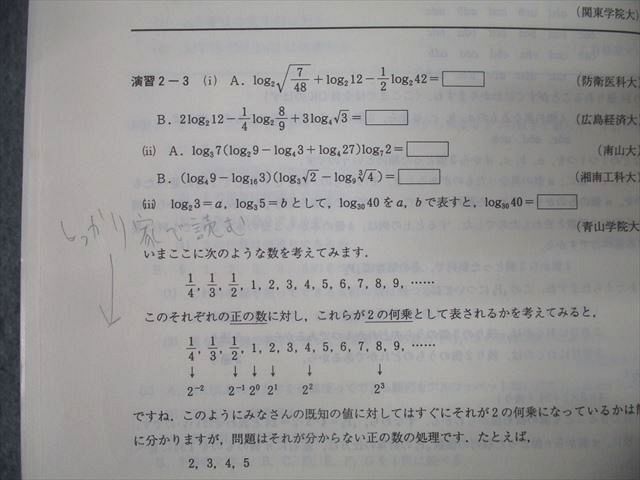 (関東学院大)
演習2-3 (i) A. log₂√(7/48)+log₂12-1/2 log₂42=□ (防衛医科大)
B. 2log₂12-1/4 log₂ 8/9+3log₄√3=□ (広島経済大)
(ii) A. log₃7(log₂9-log₄3+log₄27)log₇2=□ (南山大)
B. (log₄9-log₁₆3)(log₃√2-log₉∛4)=□ (湘南工科大)
(iii) log₂3=a, log₃5=bとして, log₃₀40をa, bで表すと, log₃₀40=□
(青山学院大)
しっかり家で読む
いまここに次のような数を考えてみます.
1/4, 1/3, 1/2, 1, 2, 3, 4, 5, 6, 7, 8, 9, ……
このそれぞれの正の数に対し, これらが2の何乗として表されるかを考えてみると,
1/4, 1/3, 1/2, 1, 2, 3, 4, 5, 6, 7, 8, 9, ……
↓ ↓ ↓ ↓ ↓ ↓
2⁻² 2⁻¹ 2⁰ 2¹ 2² 2³
ですね. このようにみなさんの既知の値に対してはすぐにそれが2の何乗になっているかは
に分かりますが, 問題はそれが分からない正の数の処理です. たとえば,
2, 3, 4, 5